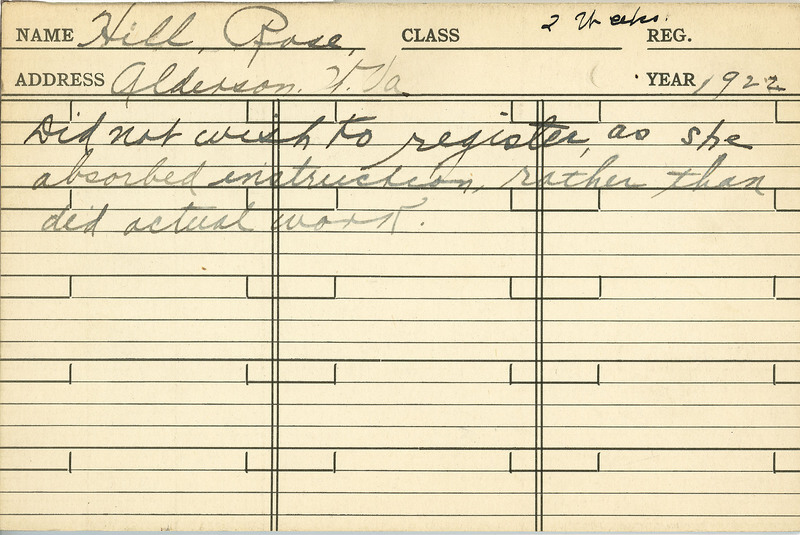 NAME Hill, Rose, CLASS 2 Weeks. REG.
ADDRESS Alderson. W. Va YEAR 1922
Did not wish to register, as she
absorbed instruction, rather than
did actual work.